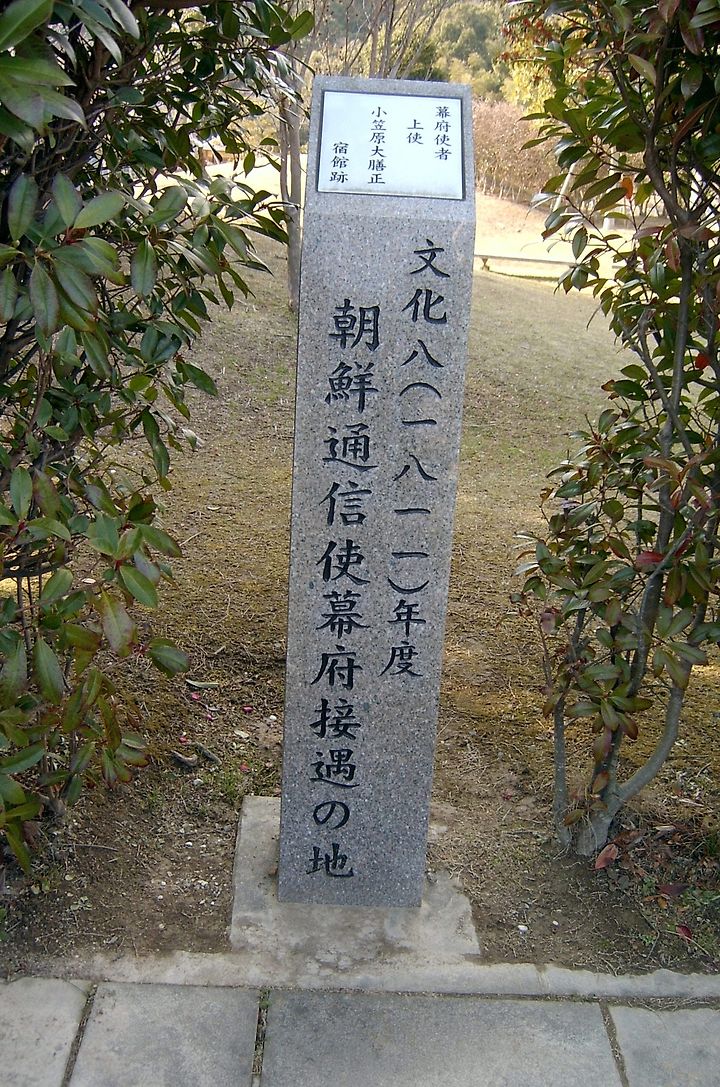 幕府使者
上使
小笠原大膳正
宿館跡
文化八(一八一一)年度
朝鮮通信使幕府接遇の地